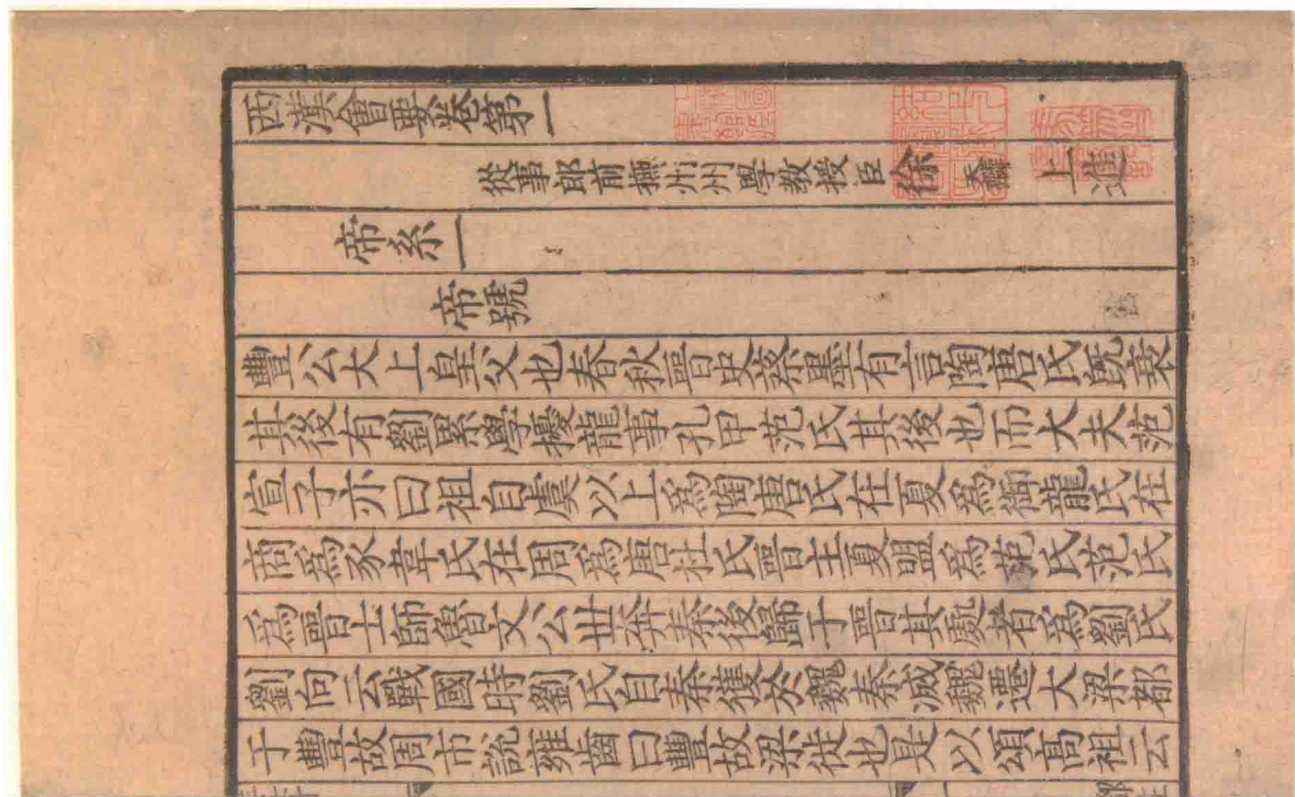 西漢會要卷第一
從事郎前撫州州學教授臣徐天麟上進
帝系一
帝號
豐公大上皇父也春秋晉史蔡墨有言陶唐氏旣衰
其後有劉累學擾龍事孔甲范氏其後也而大夫范
宣子亦曰祖自虞以上爲陶唐氏在夏爲御龍氏在
商爲豕韋氏在周爲唐杜氏晉主夏盟爲范氏范氏
爲晉士師魯文公世奔秦後歸于晉其處者爲劉氏
劉向云戰國時劉氏自秦獲於魏秦滅魏遷大梁都
于豐故周市說雍齒曰豐故梁徙也是以頌高祖云